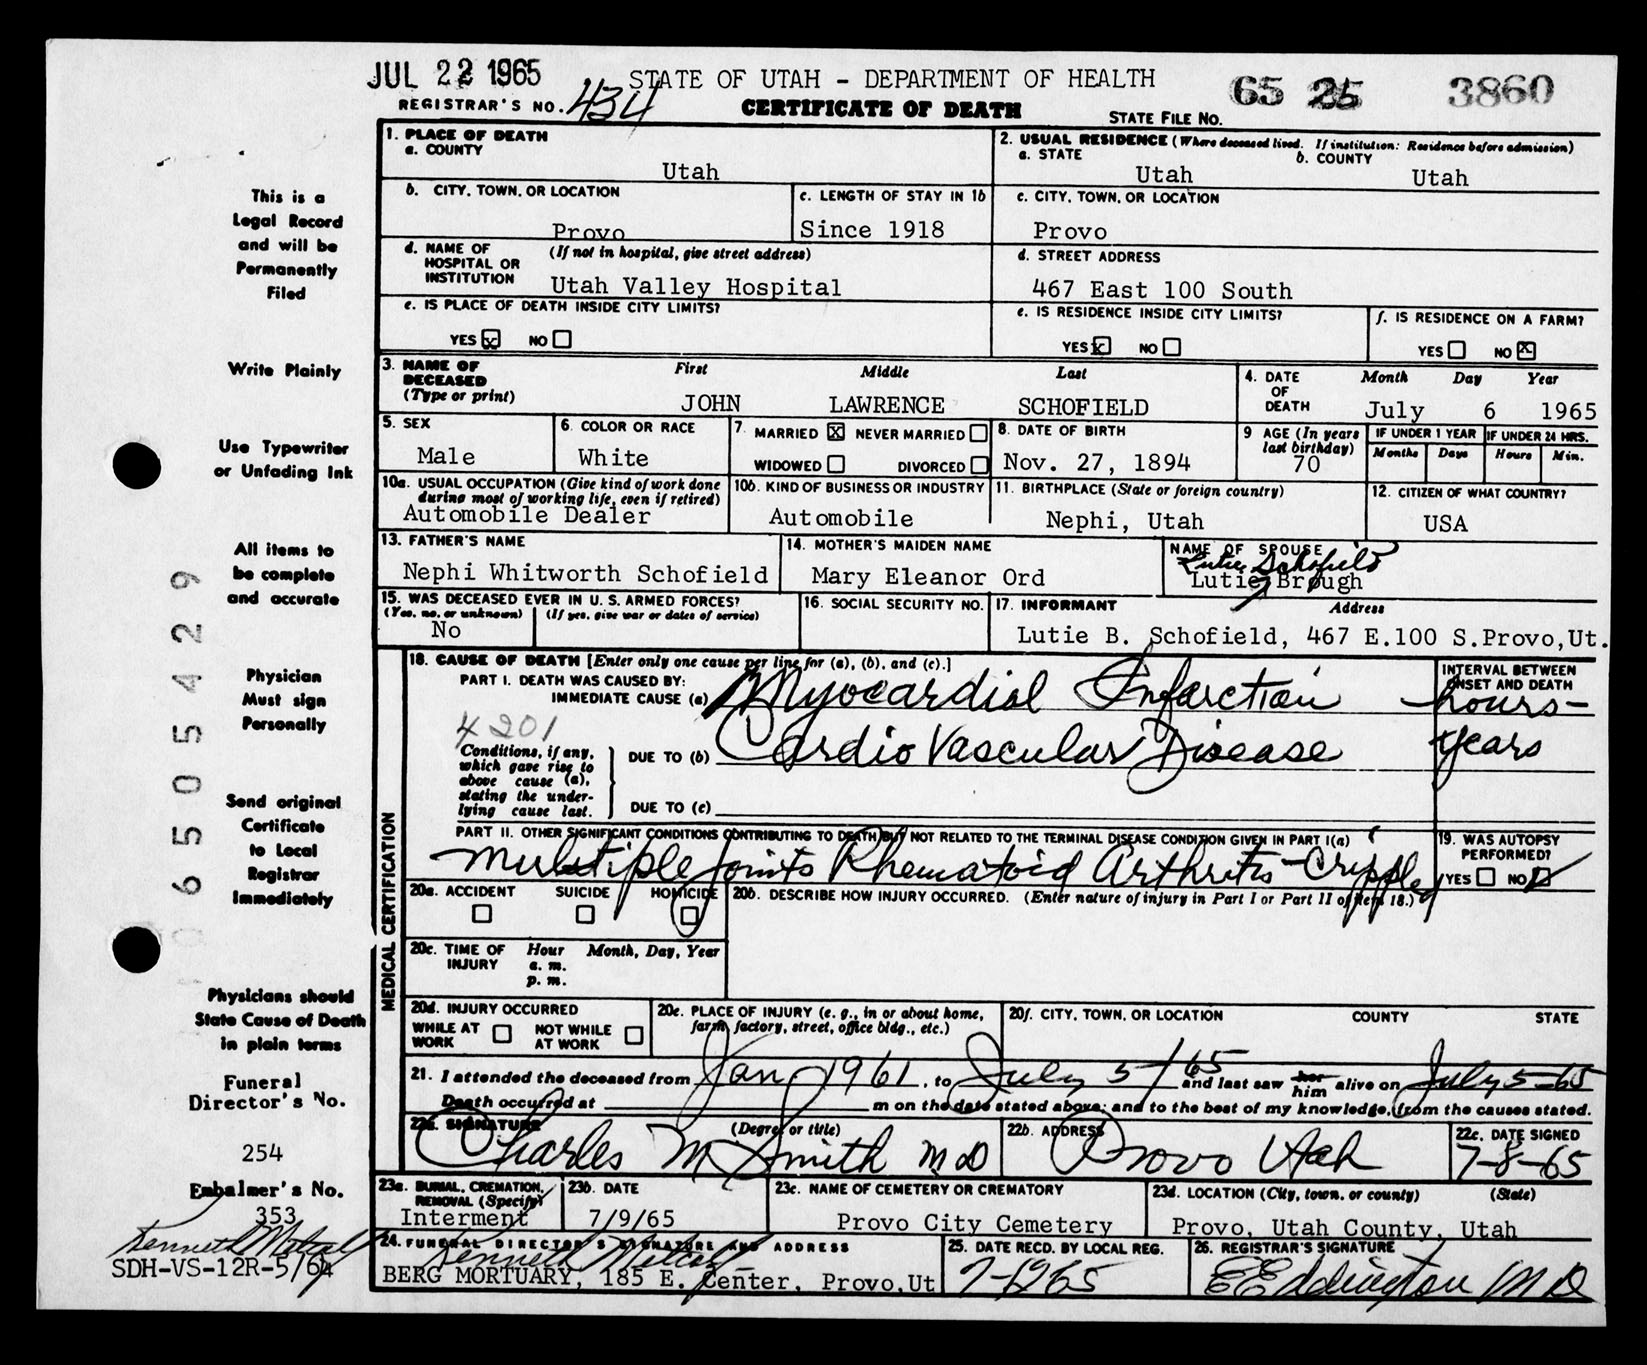 JUL 22 1965
STATE OF UTAH - DEPARTMENT OF HEALTH
65 25 3860
REGISTRAR'S NO. 434
CERTIFICATE OF DEATH
STATE FILE NO.
This is a
Legal Record
and will be
Permanently
Filed
Write Plainly
Use Typewriter
or Unfading Ink
All items to
be complete
and accurate
Physician
Must sign
Personally
Send original
Certificate
to Local
Registrar
Immediately
Physicians should
State Cause of Death
in plain terms
Funeral
Director's No.
254
Embalmer's No.
353
Kenneth Metcalf
SDH-VS-12R-5/64
0 6 5 0 5 4 2 9
1. PLACE OF DEATH
a. COUNTY
Utah
2. USUAL RESIDENCE (Where deceased lived. If institution: Residence before admission)
a. STATE
Utah
b. COUNTY
Utah
b. CITY, TOWN, OR LOCATION
Provo
c. LENGTH OF STAY IN 1b
Since 1918
c. CITY, TOWN, OR LOCATION
Provo
d. NAME OF (If not in hospital, give street address)
HOSPITAL OR
INSTITUTION Utah Valley Hospital
d. STREET ADDRESS
467 East 100 South
e. IS PLACE OF DEATH INSIDE CITY LIMITS?
YES x NO
e. IS RESIDENCE INSIDE CITY LIMITS?
YES x NO
f. IS RESIDENCE ON A FARM?
YES NO x
3. NAME OF First Middle Last
DECEASED
(Type or print) JOHN LAWRENCE SCHOFIELD
4. DATE Month Day Year
OF
DEATH July 6 1965
5. SEX
Male
6. COLOR OR RACE
White
7. MARRIED x NEVER MARRIED
WIDOWED DIVORCED
8. DATE OF BIRTH
Nov. 27, 1894
9 AGE (In years
last birthday)
70
IF UNDER 1 YEAR IF UNDER 24 HRS.
Months Days Hours Min.
10a. USUAL OCCUPATION (Give kind of work done
during most of working life, even if retired)
Automobile Dealer
10b. KIND OF BUSINESS OR INDUSTRY
Automobile
11. BIRTHPLACE (State or foreign country)
Nephi, Utah
12. CITIZEN OF WHAT COUNTRY?
USA
13. FATHER'S NAME
Nephi Whitworth Schofield
14. MOTHER'S MAIDEN NAME
Mary Eleanor Ord
NAME OF SPOUSE
Lutie Schofield
Lutie Brough
15. WAS DECEASED EVER IN U. S. ARMED FORCES?
(Yes, no, or unknown) (If yes, give war or dates of service)
No
16. SOCIAL SECURITY NO.
17. INFORMANT Address
Lutie B. Schofield, 467 E.100 S.Provo,Ut.
MEDICAL CERTIFICATION
18. CAUSE OF DEATH [Enter only one cause per line for (a), (b), and (c).]
PART I. DEATH WAS CAUSED BY:
IMMEDIATE CAUSE (a) Myocardial Infarction
INTERVAL BETWEEN
ONSET AND DEATH
hours-
4201
Conditions, if any,
which gave rise to
above cause (a),
stating the under-
lying cause last.
DUE TO (b) Cardio Vascular Disease
years
DUE TO (c)
PART II. OTHER SIGNIFICANT CONDITIONS CONTRIBUTING TO DEATH BUT NOT RELATED TO THE TERMINAL DISEASE CONDITION GIVEN IN PART I(a)
Multiple joints Rhematoid Arthritis - Crippled
19. WAS AUTOPSY
PERFORMED?
YES NO
20a. ACCIDENT SUICIDE HOMICIDE
20b. DESCRIBE HOW INJURY OCCURRED. (Enter nature of injury in Part I or Part II of item 18.)
20c. TIME OF Hour Month, Day, Year
INJURY a. m.
p. m.
20d. INJURY OCCURRED
WHILE AT NOT WHILE
WORK AT WORK
20e. PLACE OF INJURY (e. g., in or about home,
farm, factory, street, office bldg., etc.)
20f. CITY, TOWN, OR LOCATION COUNTY STATE
21. I attended the deceased from Jan 1961, to July 5/65 and last saw her him alive on July 5-65
Death occurred at m on the date stated above; and to the best of my knowledge, from the causes stated.
22a. SIGNATURE (Degree or title)
Charles M Smith MD
22b. ADDRESS
Provo Utah
22c. DATE SIGNED
7-8-65
23a. BURIAL, CREMATION,
REMOVAL (Specify)
Interment
23b. DATE
7/9/65
23c. NAME OF CEMETERY OR CREMATORY
Provo City Cemetery
23d. LOCATION (City, town, or county) (State)
Provo, Utah County, Utah
24. FUNERAL DIRECTOR'S SIGNATURE AND ADDRESS
Kenneth Metcalf
BERG MORTUARY, 185 E. Center, Provo,Ut
25. DATE RECD. BY LOCAL REG.
7-1265
26. REGISTRAR'S SIGNATURE
E E Eddington MD